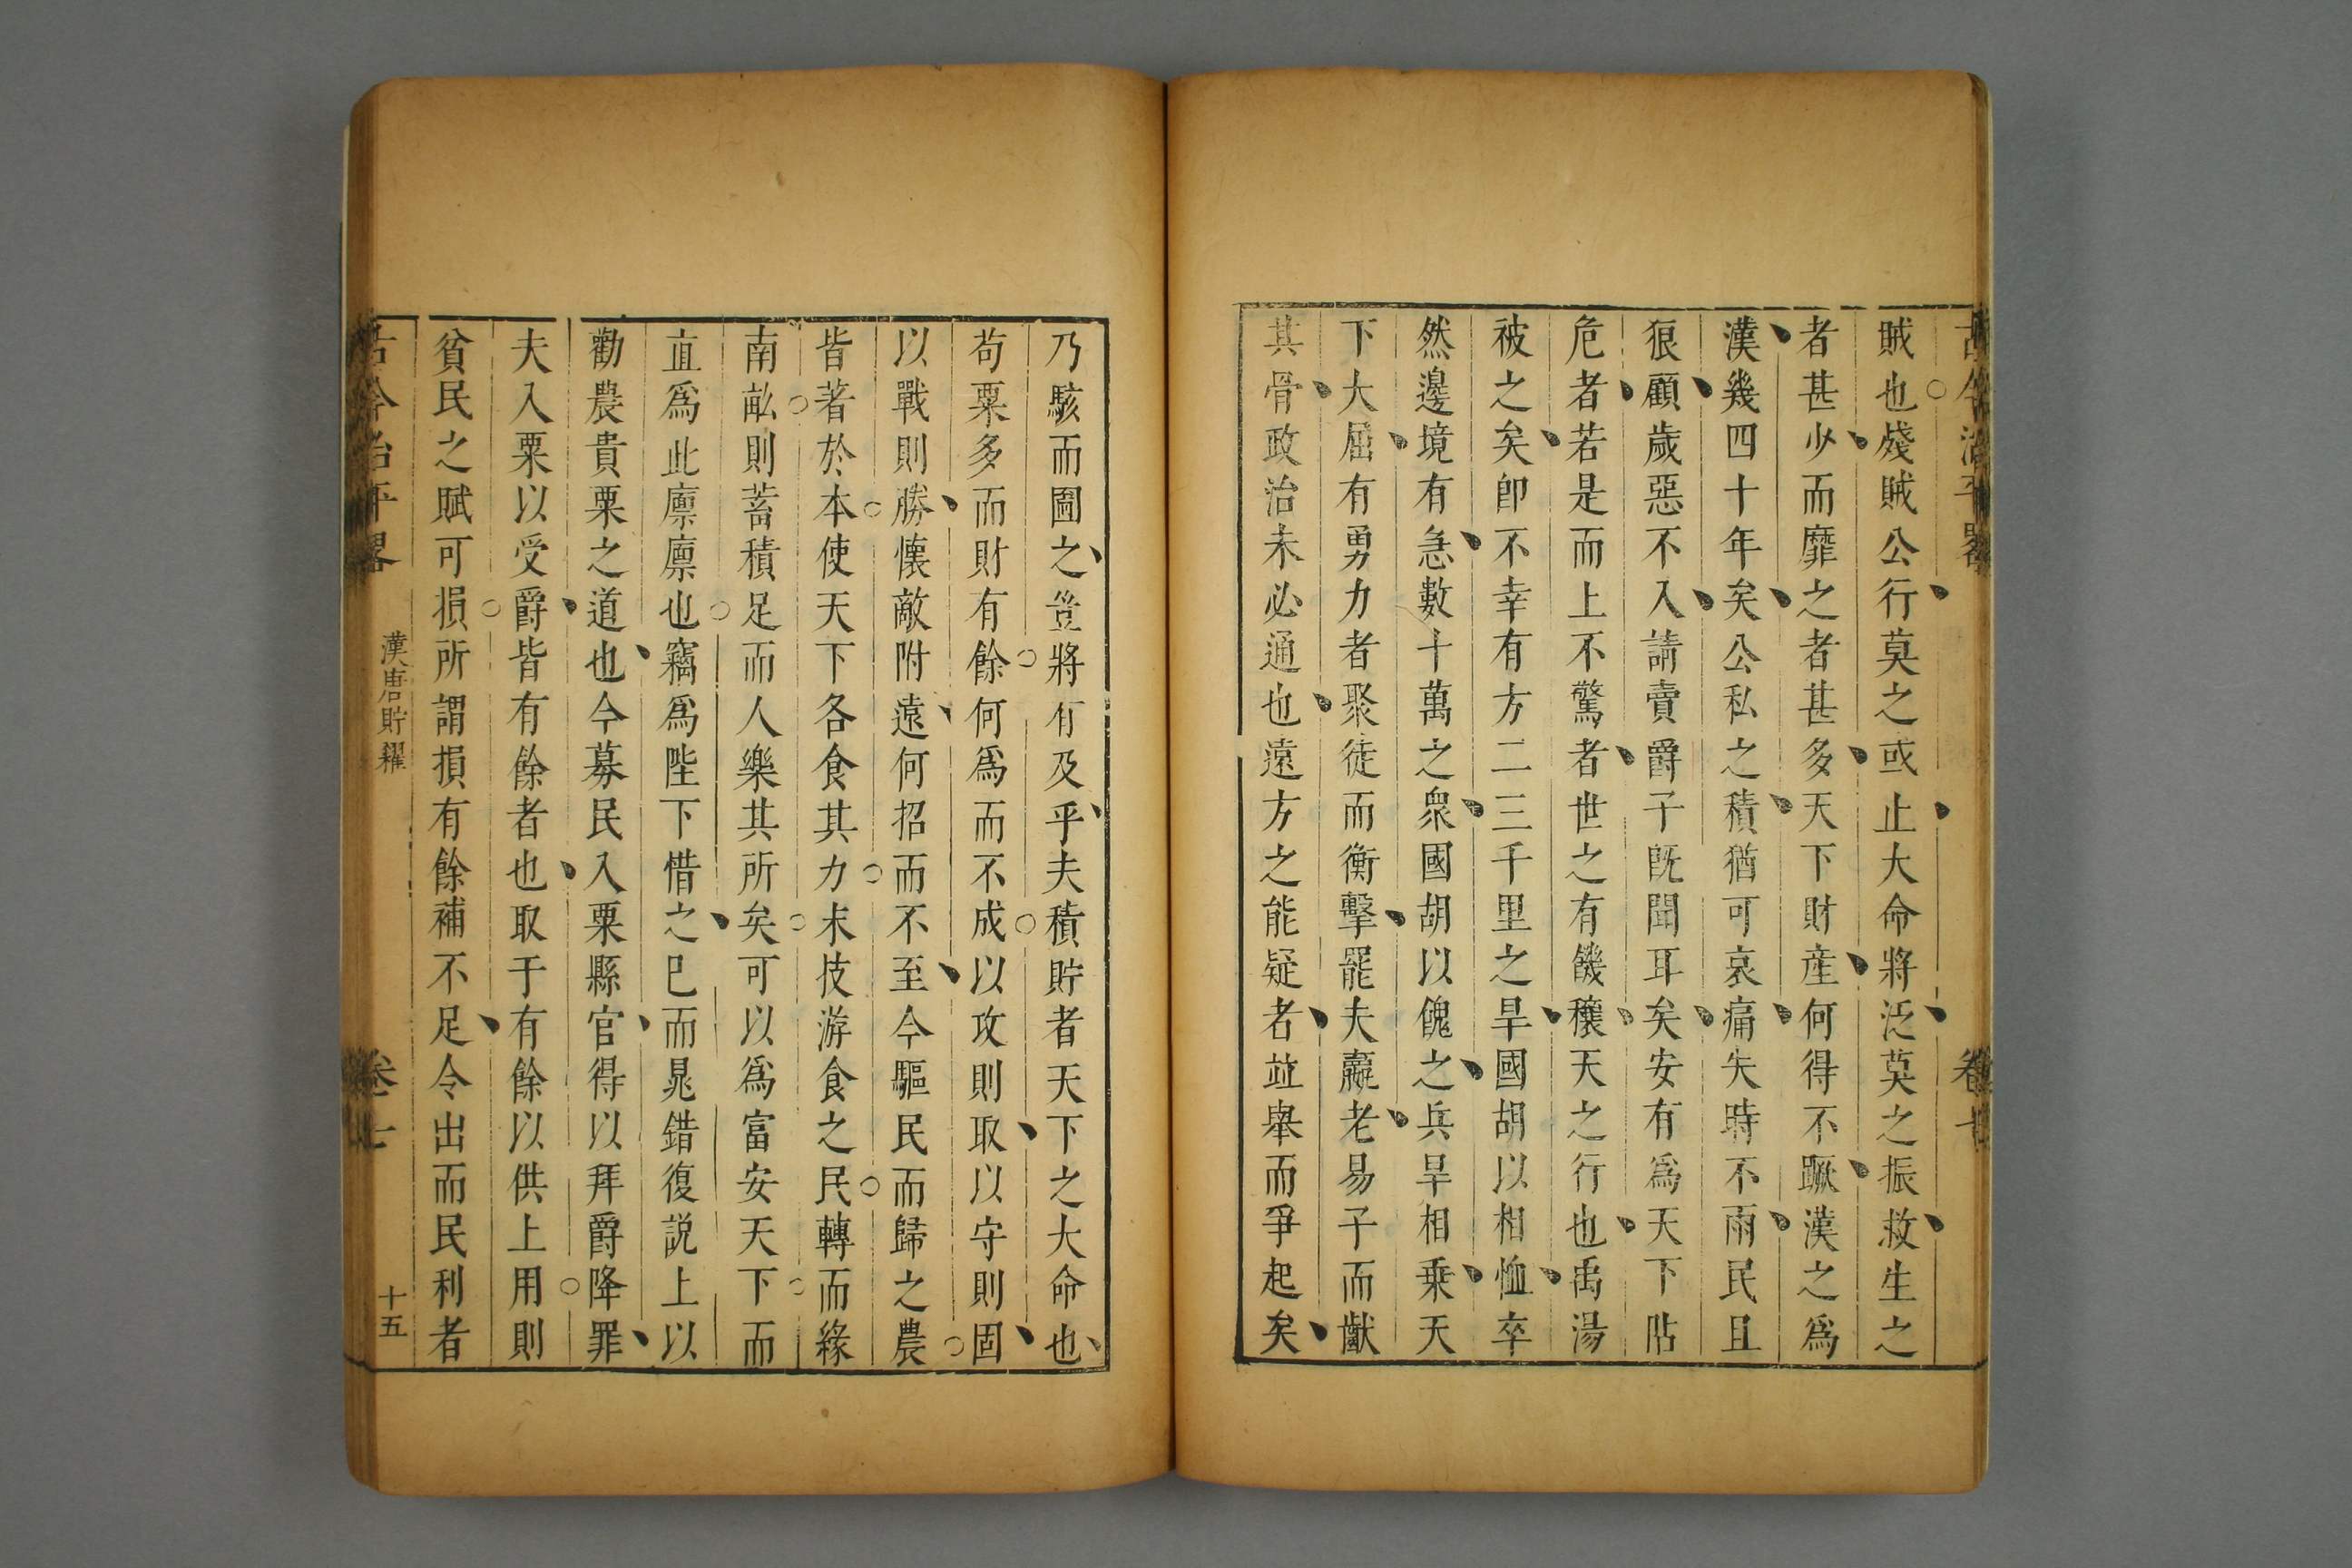 古今治平畧
卷七
賊也殘賊公行莫之或止大命將泛莫之振救生之
者甚少而靡之者甚多天下財產何得不蹶漢之爲
漢幾四十年矣公私之積猶可哀痛失時不雨民且
狼顧歲惡不入請賣爵子旣聞耳矣安有爲天下阽
危者若是而上不驚者世之有饑穰天之行也禹湯
被之矣卽不幸有方二三千里之旱國胡以相恤卒
然邊境有急數十萬之衆國胡以餽之兵旱相乘天
下大屈有勇力者聚徒而衡擊罷夫羸老易子而齩
其骨政治未必通也遠方之能疑者並舉而爭起矣
乃駭而圖之豈將有及乎夫積貯者天下之大命也
苟粟多而財有餘何爲而不成以攻則取以守則固
以戰則勝懷敵附遠何招而不至今驅民而歸之農
皆著於本使天下各食其力末技游食之民轉而緣
南畝則蓄積足而人樂其所矣可以爲富安天下而
直爲此廩廩也竊爲陛下惜之已而晁錯復説上以
勸農貴粟之道也今募民入粟縣官得以拜爵降罪
夫入粟以受爵皆有餘者也取于有餘以供上用則
貧民之賦可損所謂損有餘補不足令出而民利者
古今治平畧
漢唐貯糴
卷七
十五